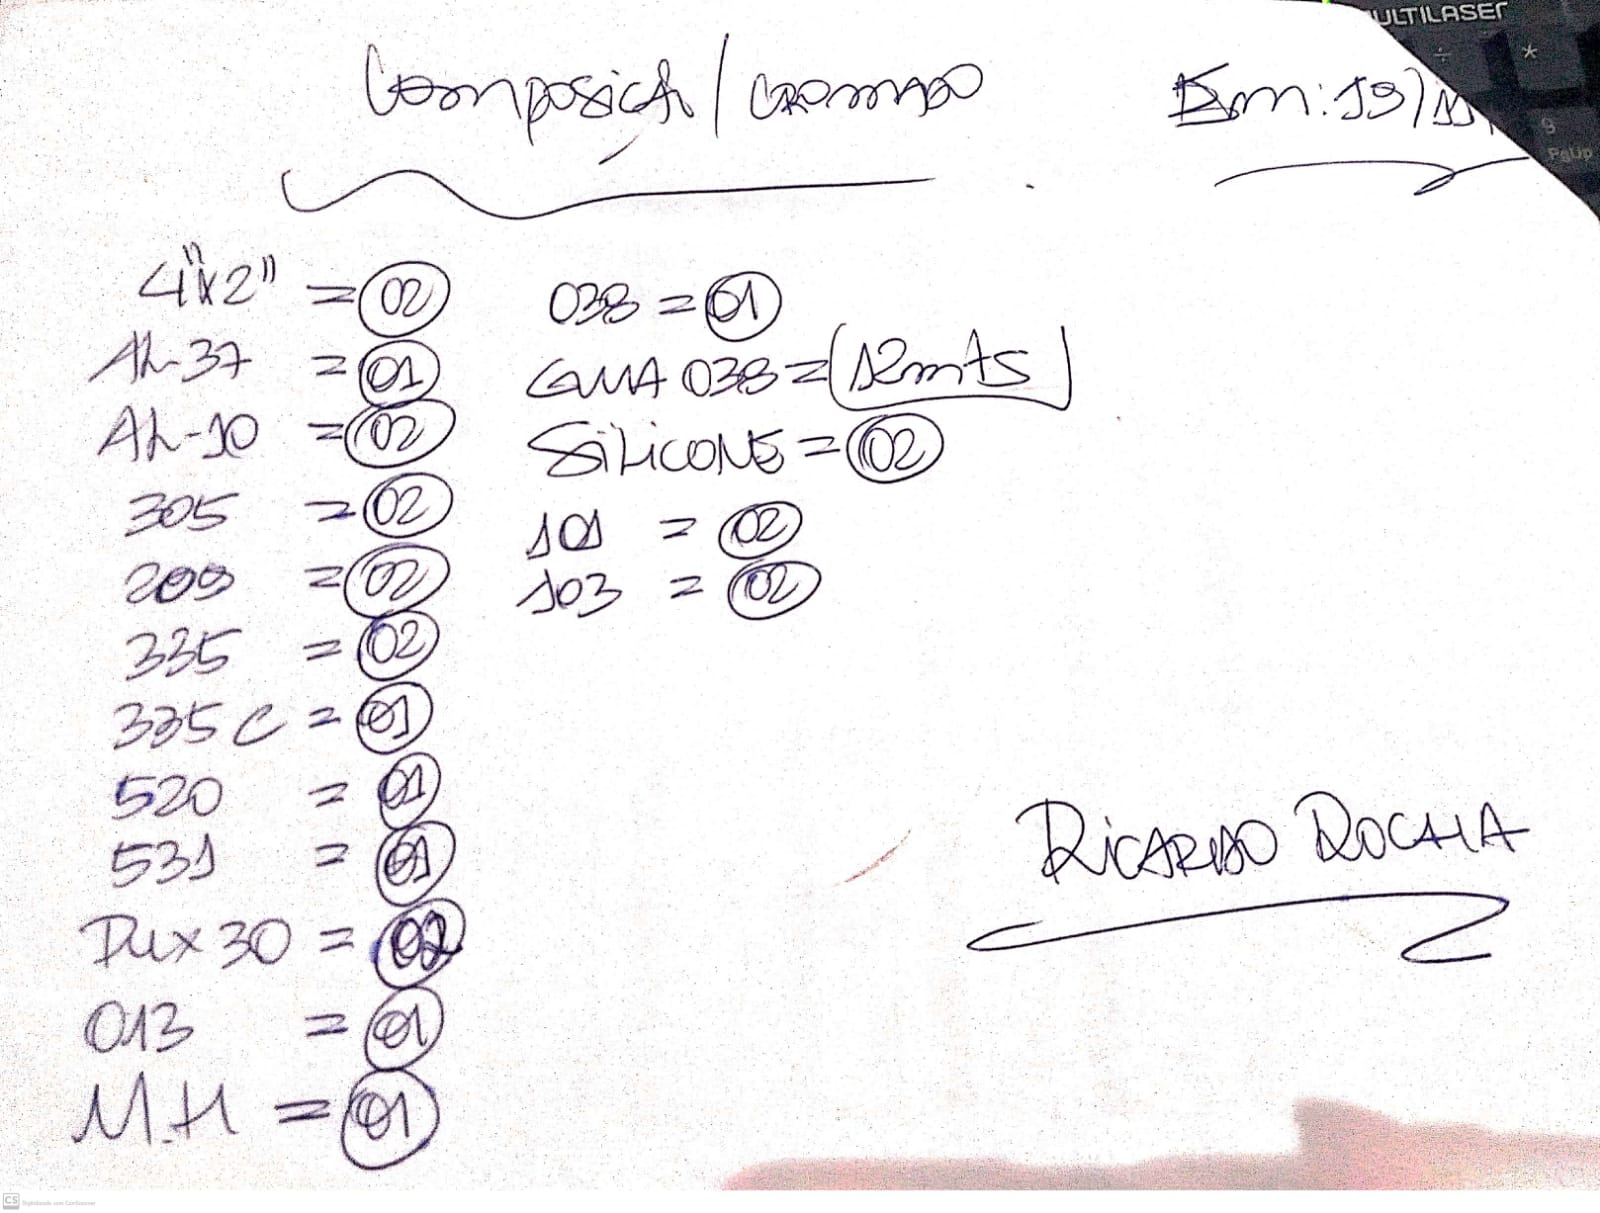 Composição/CROMADO
Em: 19/11
4"x2" = 02
AL-37 = 01
AL-10 = 02
305 = 02
209 = 02
335 = 02
335 C = 01
520 = 01
531 = 01
Dux 30 = 02
013 = 01
M.H = 01
038 = 01
GUIA 038 = (12mts)
SILICONE = 02
101 = 02
103 = 02
RICARDO ROCHA
ULTILASER
÷ *
9
PgUp
CS